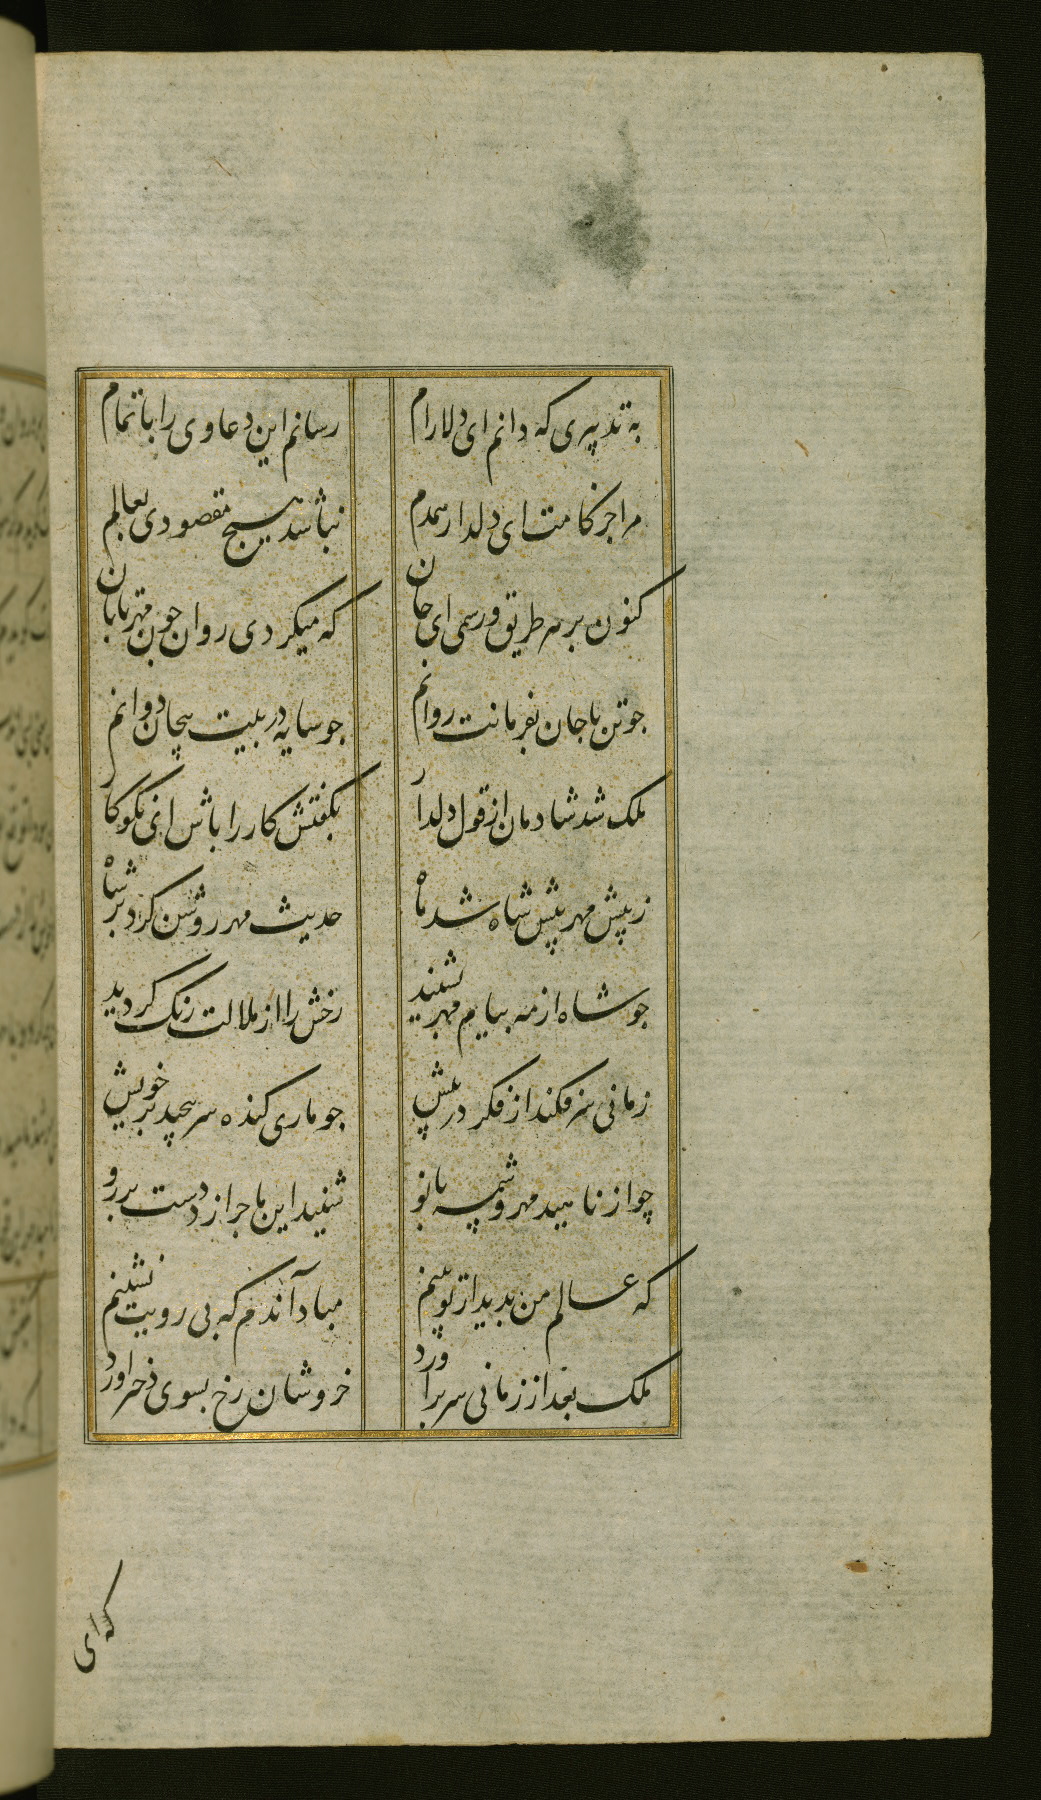 به تدبیری که دانم ای دلارام رسانم این دعاوی را باتمام
مرا جز کامت ای دلدار همدم نباشد هیچ مقصودی بعالم
کنون بر هر طریق و رسمی ای جان که میگردی روان چون مهربانان
جوتن با جان بفرمانت روانم جو سایه در پیت پیچان دوانم
ملک شد شادمان از قول دلدار بگفتش کار را باش ای نکوکار
ز پیش مهر پیش شاه شد ماه حدیث مهر روشن کرد بر شاه
جو شاه از مه پیام مهر بشنید رخش را از ملالت رنگ گردید
زمانی سر فکند از فکر در پیش جو ماری کنده سر پیچید بر خویش
چو از ناهید مهر و شمسه بانو شنید این ماجرا از دست بر رو
که عالم من بدیدار تو بینم مباد آندم که بی رویت نشینم
ملک بعد از زمانی سر برآورد خروشان رخ بسوی دختر اورد
که ای